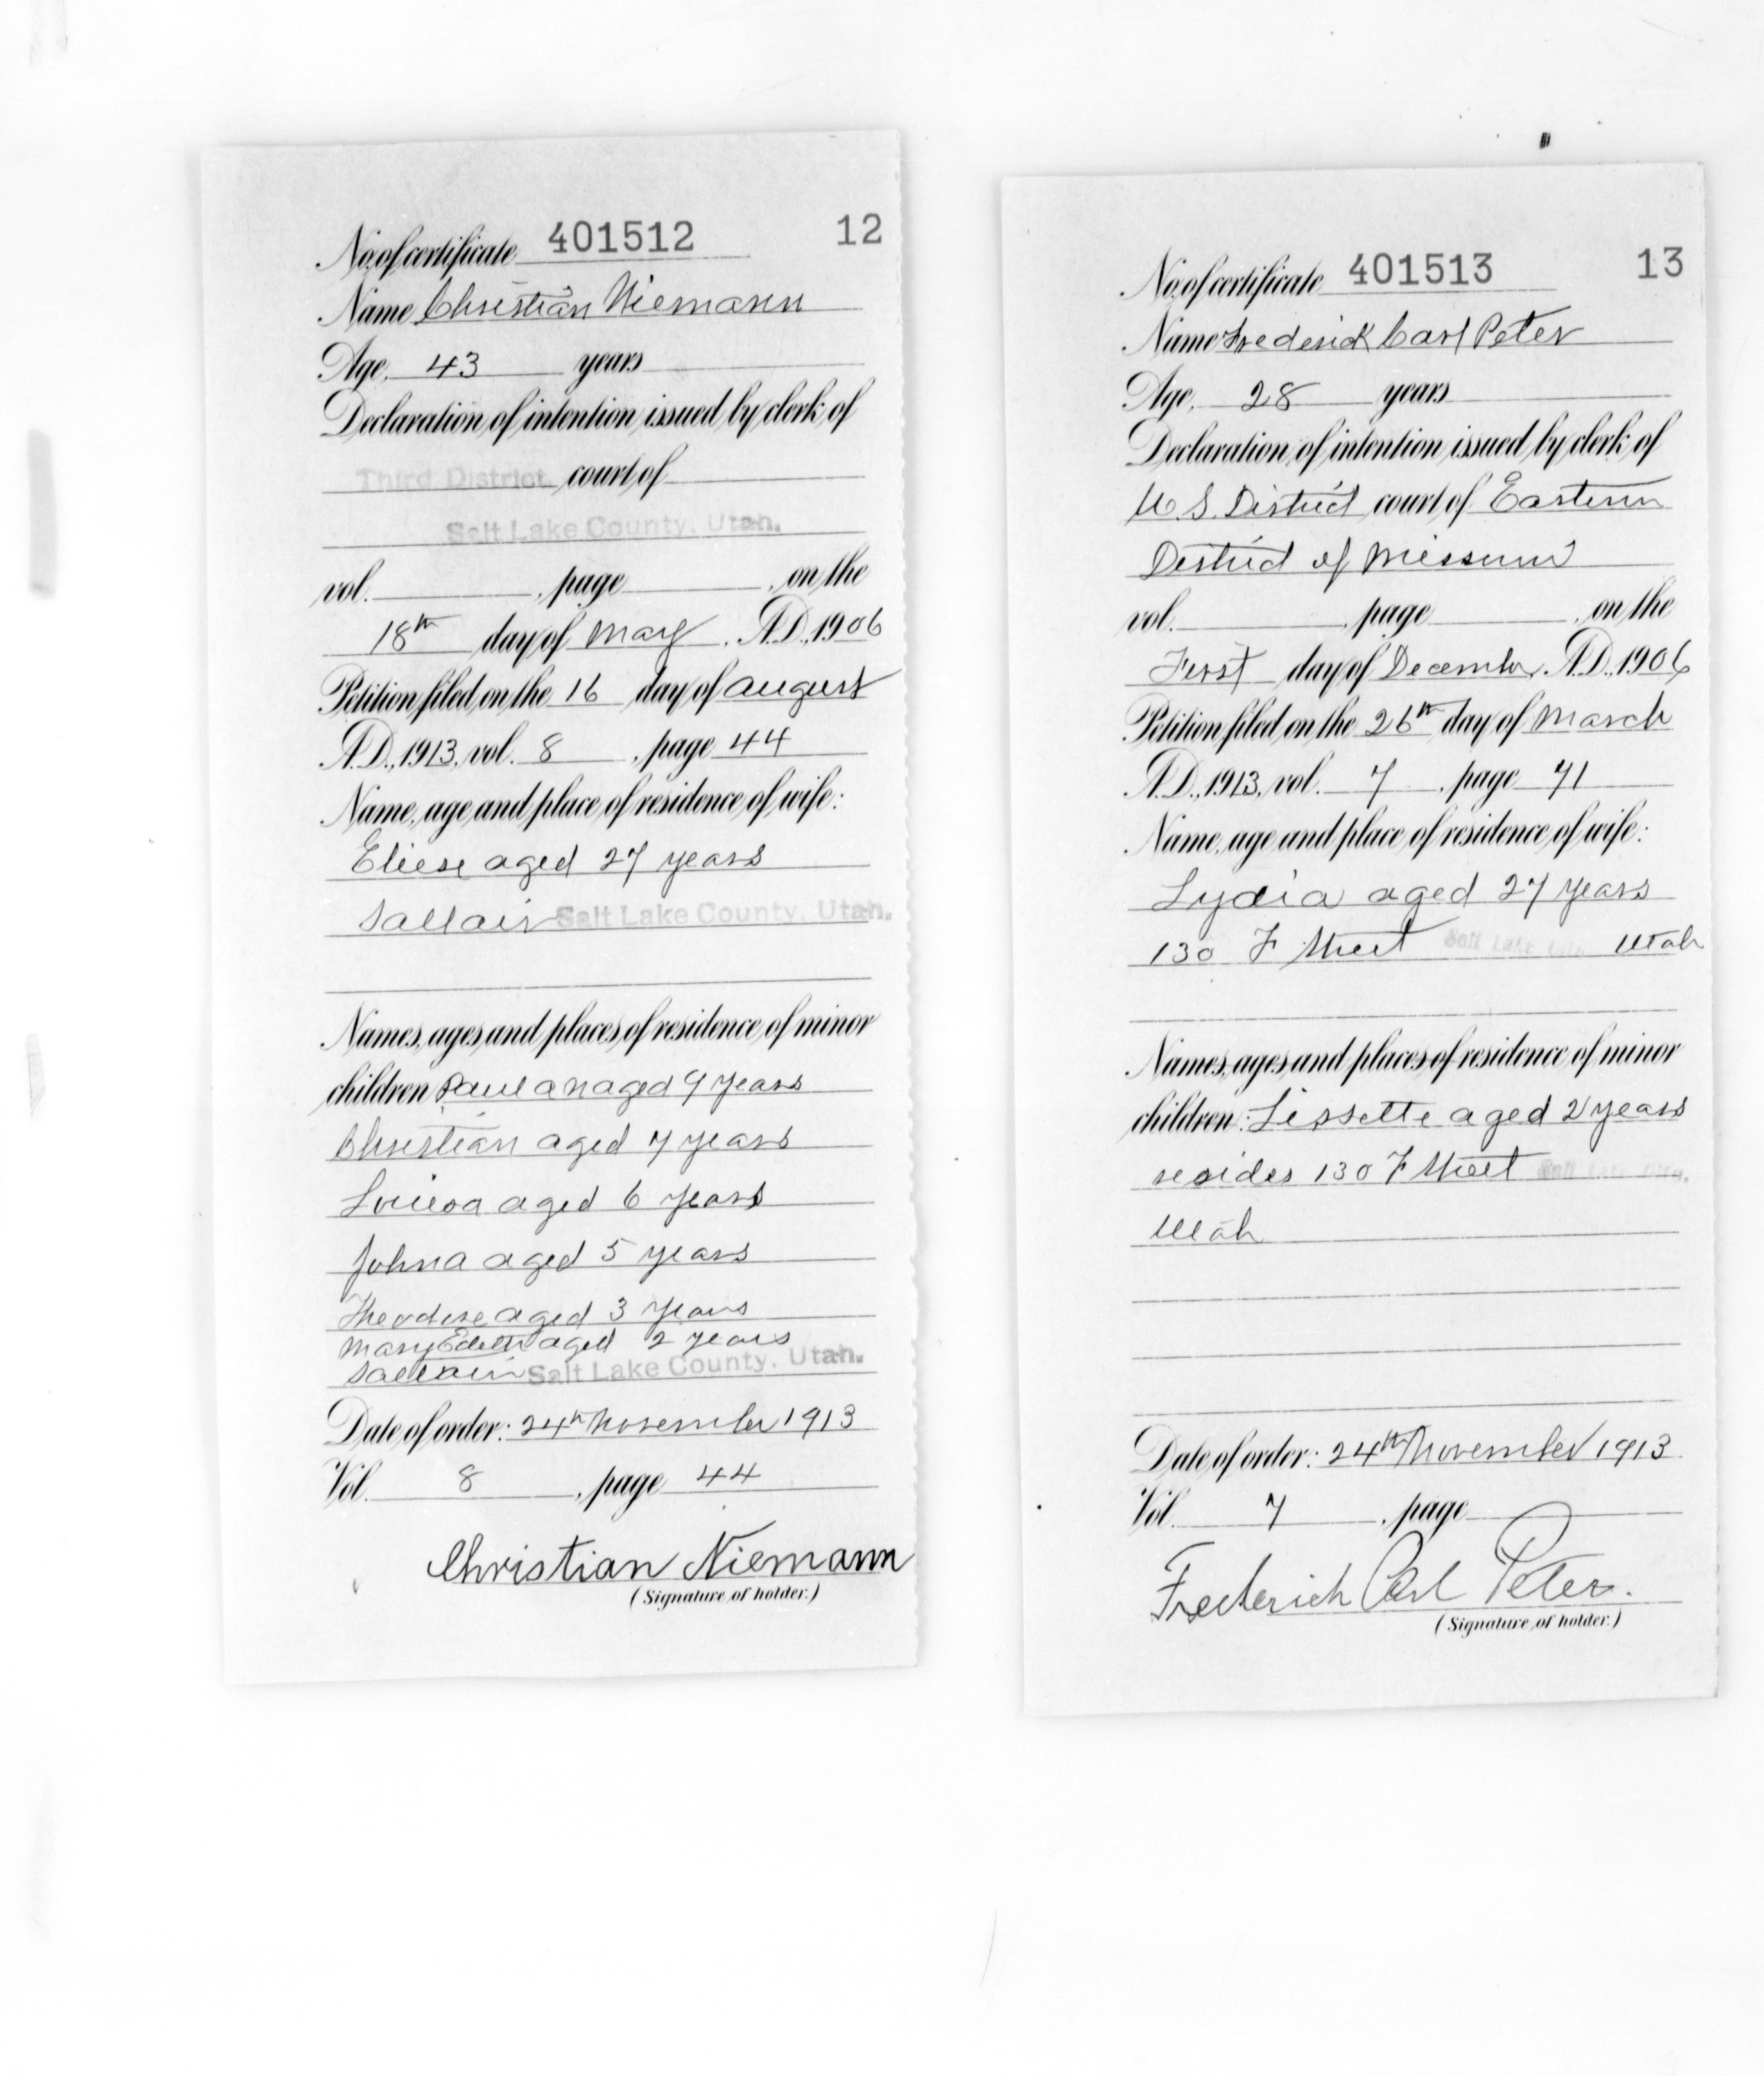 No. of certificate 401512 12
Name Christian Niemann
Age, 43 years
Declaration of intention issued by clerk of
Third District court of
Salt Lake County, Utah.
vol. , page , on the
18th day of May , A.D., 1906
Petition filed on the 16 day of August
A.D., 1913, vol. 8 , page 44
Name, age and place of residence of wife:
Eliese aged 27 years
Saltair Salt Lake County, Utah.
Names, ages and places of residence of minor
children aged 9 years
Christian aged 7 years
Louisa aged 6 years
Johna aged 5 years
Theodore aged 3 years
Mary Edith aged 2 years
Saltair Salt Lake County, Utah.
Date of order: 24th November 1913
Vol. 8 , page 44
Christian Niemann
(Signature of holder.)
No. of certificate 401513 13
Name Frederick Carl Peter
Age, 28 years
Declaration of intention issued by clerk of
U.S. District court of Eastern
District of Missouri
vol. , page , on the
First day of December, A.D., 1906
Petition filed on the 26th day of March
A.D., 1913, vol. 7 , page 71
Name, age and place of residence of wife:
Lydia aged 27 years
130 F Street Salt Lake City, Utah
Names, ages and places of residence of minor
children: Lissette aged 2 years
resides 130 F Street Salt Lake City,
Utah
Date of order: 24th November 1913
Vol. 7 , page
Frederich Carl Peter.
(Signature of holder.)